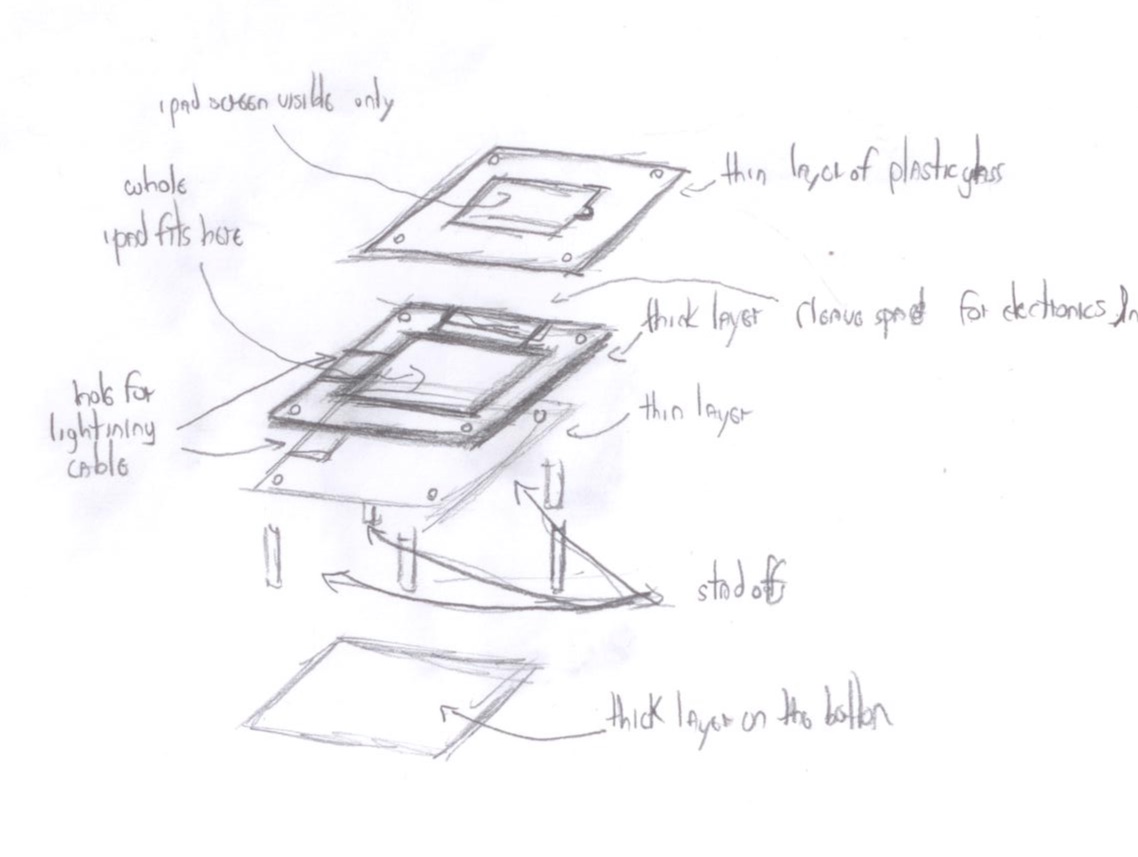 ipad screen visible only
whole
ipad fits here
thin layer of plasticglass
thick layer (leave space for electronics
hole for
lightining
cable
thin layer
stndoffs
thick layer on the bottom